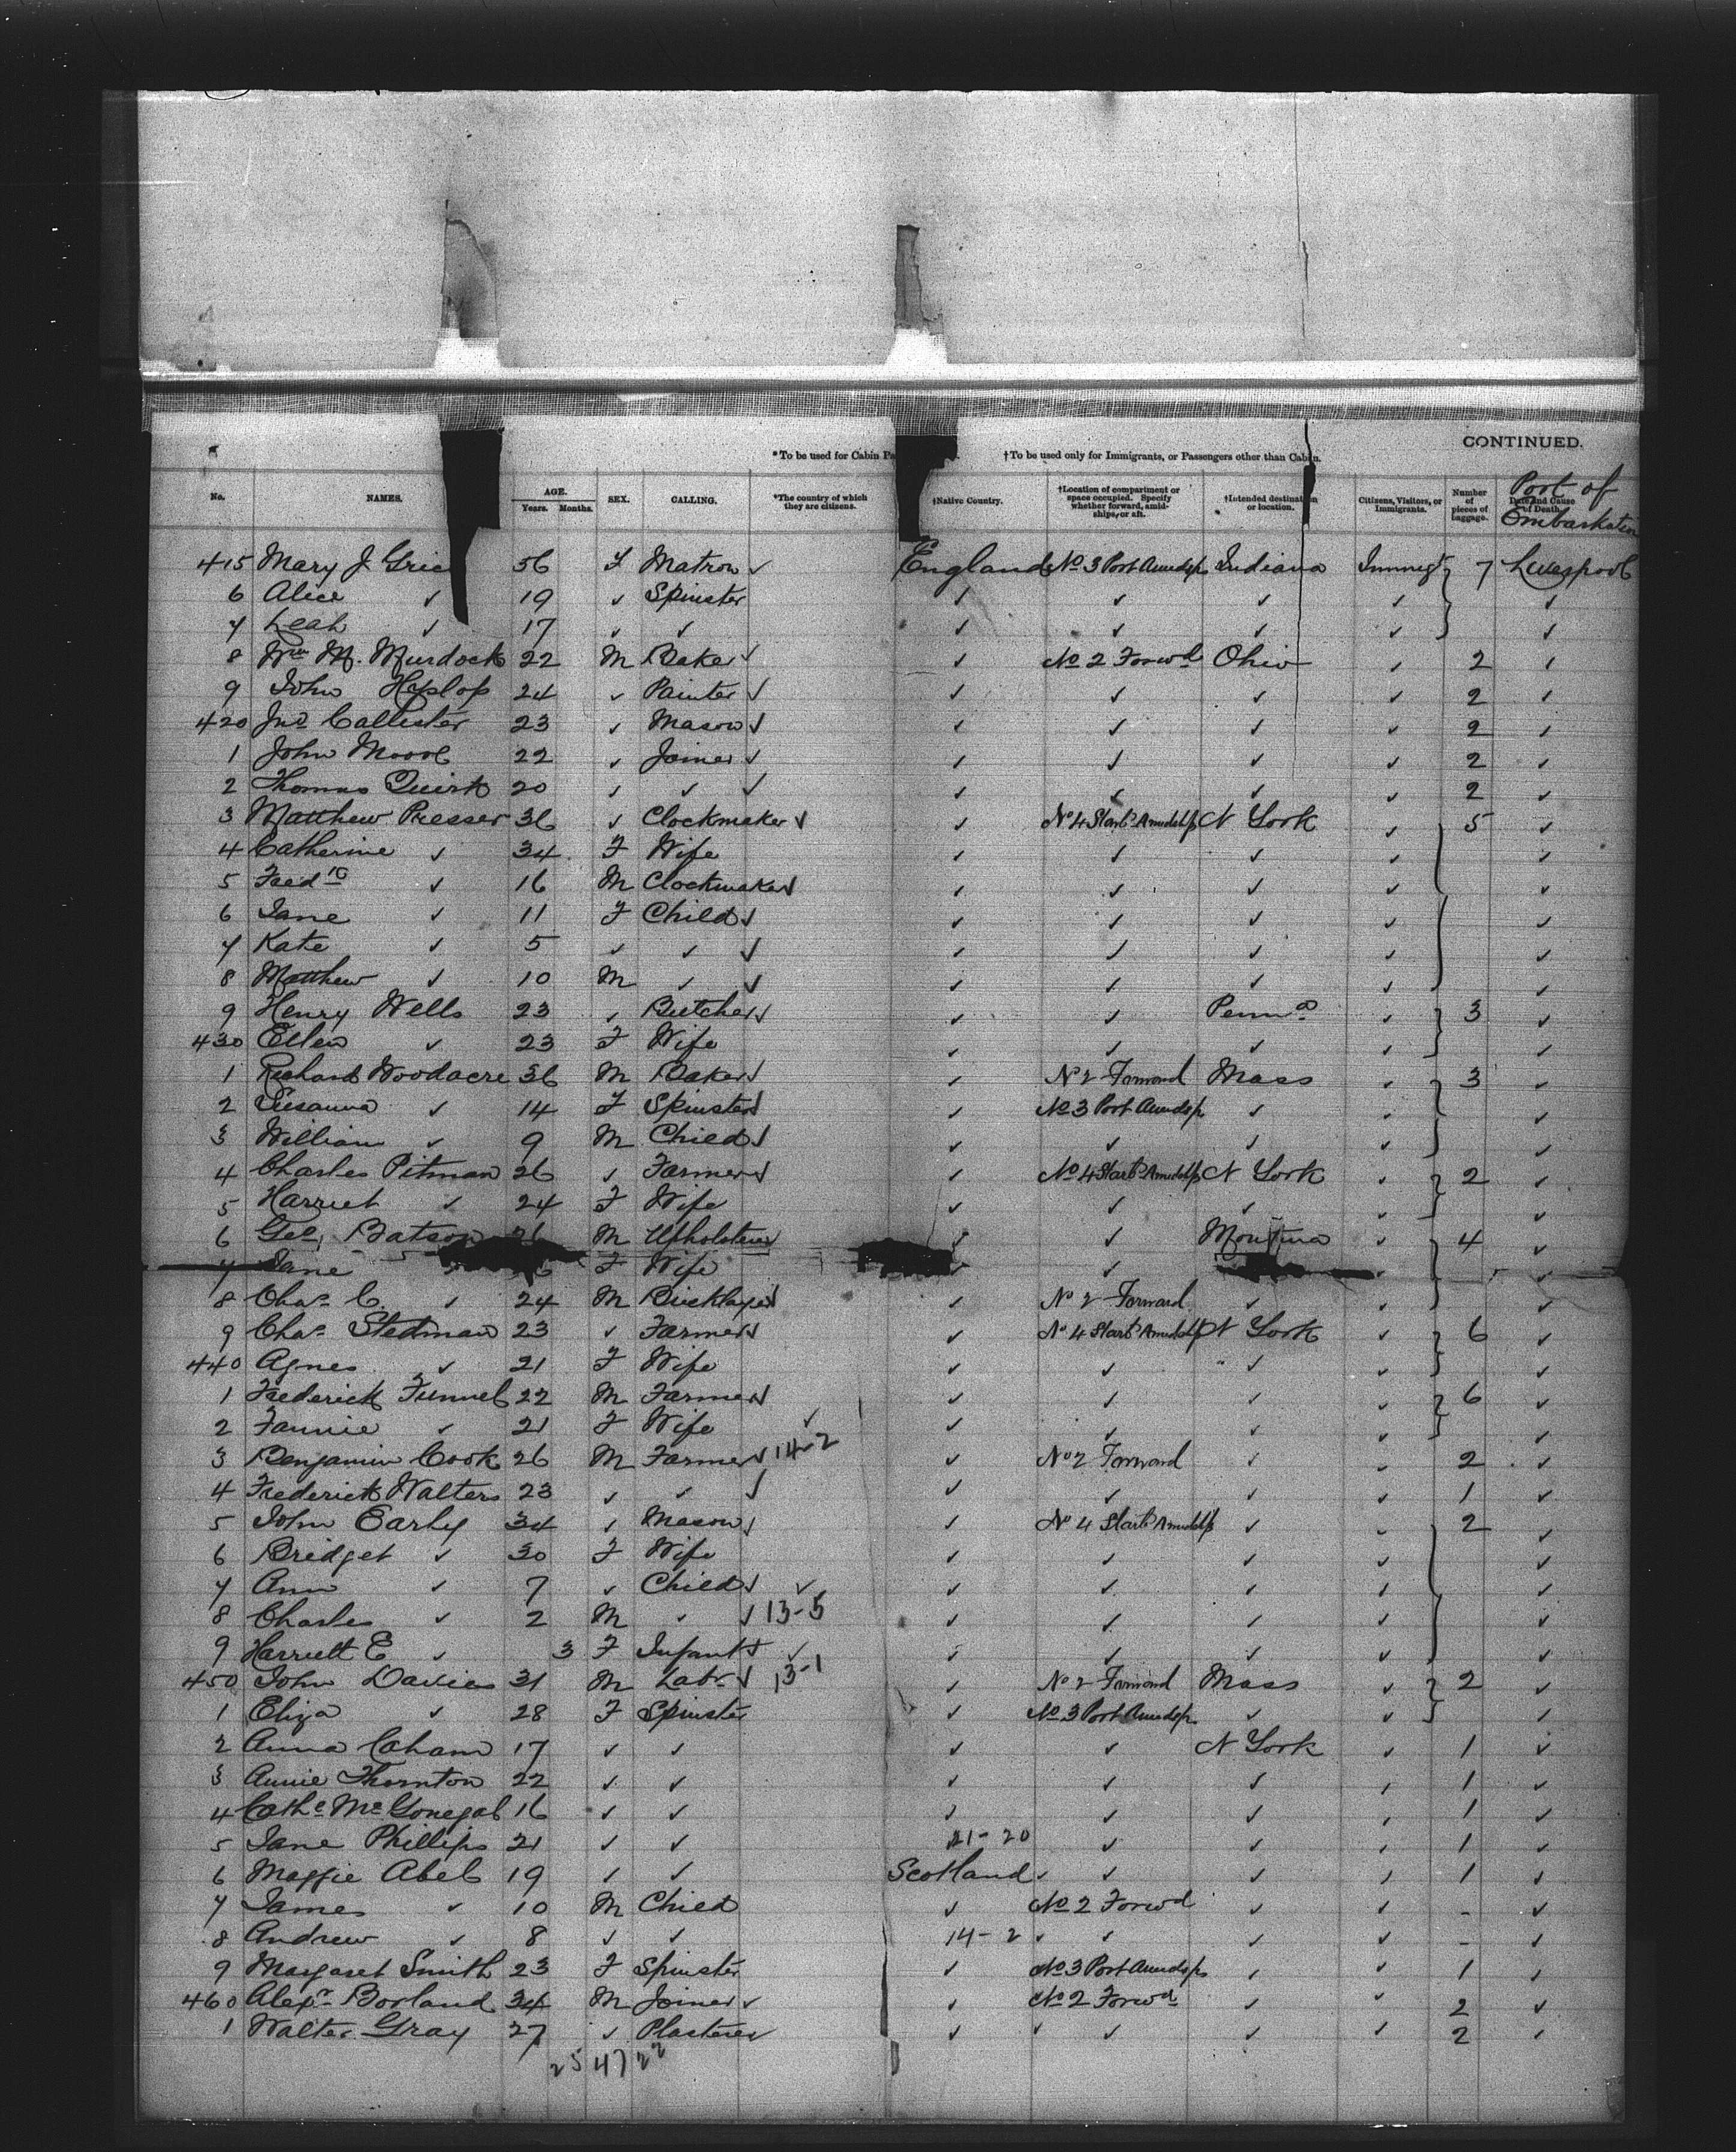 CONTINUED.
*To be used for Cabin Pa †To be used only for Immigrants, or Passengers other than Cabin.
No. NAMES. AGE. Years. Months. SEX. CALLING. *The country of which they are citizens. †Native Country. †Location of compartment or space occupied. Specify whether forward, amidships, or aft. †Intended destination or location. Citizens, Visitors, or Immigrants. Number of pieces of baggage. Date and Cause of Death. Port of Embarkation
415 Mary J Gric 56 F Matron ✓ England No 3 Port Amidsp Indiana Immigt 7 Liverpool
6 Alice ✓ 19 ✓ Spinster ✓ ✓ ✓ ✓ ✓
7 Leah ✓ 17 ✓ ✓ ✓ ✓ ✓ ✓ ✓
8 Wm M. Murdock 22 M Baker ✓ ✓ No 2 Forwd Ohio ✓ 2 ✓
9 John Hyslop 24 ✓ Painter ✓ ✓ ✓ ✓ ✓ 2 ✓
420 Jno Callister 23 ✓ Mason ✓ ✓ ✓ ✓ ✓ 2 ✓
1 John Moore 22 ✓ Joiner ✓ ✓ ✓ ✓ ✓ 2 ✓
2 Thomas Quirk 20 ✓ ✓ ✓ ✓ ✓ ✓ ✓ 2 ✓
3 Matthew Presser 36 ✓ Clockmaker ✓ ✓ No 4 Starb Amidshp N York ✓ 5 ✓
4 Catherine ✓ 34 F Wife ✓ ✓ ✓ ✓ ✓
5 Fredk ✓ 16 M Clockmaker ✓ ✓ ✓ ✓ ✓ ✓
6 Jane ✓ 11 F Child ✓ ✓ ✓ ✓ ✓ ✓
7 Kate ✓ 5 ✓ ✓ ✓ ✓ ✓ ✓ ✓ ✓
8 Matthew ✓ 10 M ✓ ✓ ✓ ✓ ✓ ✓ ✓
9 Henry Wells 23 ✓ Butcher ✓ ✓ ✓ Penna ✓ 3 ✓
430 Ellen ✓ 23 F Wife ✓ ✓ ✓ ✓ ✓
1 Richard Woodacre 36 M Baker ✓ ✓ No 2 Forward Mass ✓ 3 ✓
2 Susanna ✓ 14 F Spinster ✓ ✓ No 3 Port Amidsp ✓ ✓ ✓
3 William ✓ 9 M Child ✓ ✓ ✓ ✓ ✓ ✓
4 Charles Pitman 26 ✓ Farmer ✓ ✓ No 4 Starb Amidshp N York ✓ 2 ✓
5 Harriet ✓ 24 F Wife ✓ ✓ ✓ ✓ ✓
6 Geo. Batson 26 M Upholsterer ✓ ✓ Montana ✓ 4 ✓
7 Jane ✓ F Wife ✓ ✓ ✓ ✓
8 Chas C. ✓ 24 M Bricklayer ✓ ✓ No 2 Forward ✓ ✓ ✓
9 Chas Stedman 23 ✓ Farmer ✓ ✓ No 4 Starb Amidshp N York ✓ 6 ✓
440 Agnes ✓ 21 F Wife ✓ ✓ ✓ ✓ ✓
1 Frederick Funnel 22 M Farmer ✓ ✓ ✓ ✓ ✓ 6 ✓
2 Fannie ✓ 21 F Wife ✓ ✓ ✓ ✓ ✓ ✓
3 Benjamin Cook 26 M Farmer ✓ 14-2 ✓ No 2 Forward ✓ ✓ 2 ✓
4 Frederick Walters 23 ✓ ✓ ✓ ✓ ✓ ✓ ✓ 1 ✓
5 John Early 34 ✓ Mason ✓ ✓ No 4 Starb Amidshp ✓ ✓ 2 ✓
6 Bridget ✓ 30 F Wife ✓ ✓ ✓ ✓ ✓
7 Ann ✓ 7 ✓ Child ✓ ✓ ✓ ✓ ✓ ✓ ✓
8 Charles ✓ 2 M ✓ ✓ 13-5 ✓ ✓ ✓ ✓ ✓
9 Harriett E ✓ 3 F Infant ✓ ✓ ✓ ✓ ✓ ✓ ✓
450 John Davies 31 M Labr ✓ 13-1 ✓ No 2 Forward Mass ✓ 2 ✓
1 Eliza ✓ 28 F Spinster ✓ No 3 Port Amidsp ✓ ✓ ✓
2 Anna Caham 17 ✓ ✓ ✓ ✓ N York ✓ 1 ✓
3 Annie Thornton 22 ✓ ✓ ✓ ✓ ✓ ✓ 1 ✓
4 Cathe McGonegal 16 ✓ ✓ ✓ ✓ ✓ ✓ 1 ✓
5 Jane Phillips 21 ✓ ✓ 21-20 ✓ ✓ ✓ 1 ✓
6 Maggie Abel 19 ✓ ✓ Scotland ✓ ✓ ✓ ✓ 1 ✓
7 James ✓ 10 M Child ✓ No 2 Forwd ✓ ✓ - ✓
8 Andrew ✓ 8 ✓ ✓ 14-2 ✓ ✓ ✓ ✓ - ✓
9 Margaret Smith 23 F Spinster ✓ No 3 Port Amidsps ✓ ✓ 1 ✓
460 Alexr Borland 34 M Joiner ✓ ✓ No 2 Forwd ✓ ✓ 2 ✓
1 Walter Gray 27 ✓ Plasterer ✓ ✓ ✓ ✓ ✓ ✓ 2 ✓
25 47 22